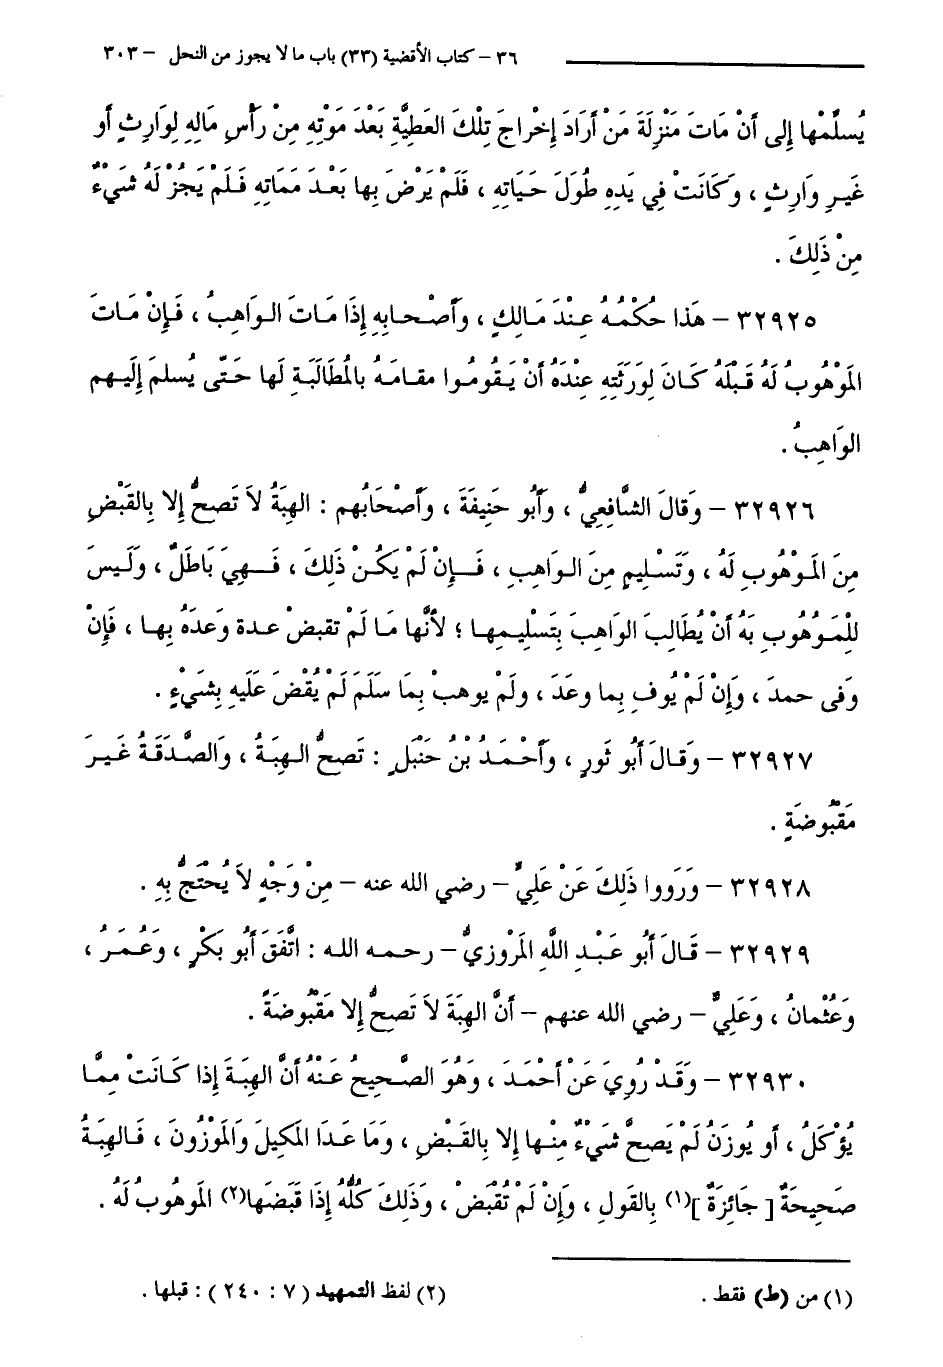 ٣٦ – كتاب الأقضية (٣٣) باب ما لا يجوز من النحل – ٣٠٣
يُسلِّمْها إِلى أَنْ مَاتَ مَنْزِلَةَ مَنْ أَرَادَ إِخْراجَ تِلْكَ العَطِيَّةِ بَعْدَ مَوْتِهِ مِنْ رَأْسِ مَالِهِ لِوَارِثٍ أَو
غَيرِ وَارِثٍ ، وَكَانَتْ فِي يَدِهِ طُولَ حَيَاتِهِ ، فَلَمْ يَرْضَ بِها بَعْدَ مَمَاتِهِ فَلَمْ يَجُزْ لَهُ شَيْءٌ
مِنْ ذَلِكَ .
٣٢٩٢٥ – هَذا حُكْمُهُ عِنْدَ مَالِكٍ ، وَأَصْحابِهِ إِذَا مَاتَ الوَاهِبُ ، فَإِنْ مَاتَ
المَوْهُوبُ لَهُ قَبْلَهُ كَانَ لِوَرَثَتِهِ عِنْدَهُ أَنْ يَقُومُوا مقامَهُ بالمُطَالَبَةِ لَها حَتَّى يُسلمَ إِلَيهم
الوَاهِبُ .
٣٢٩٢٦ – وَقالَ الشَّافِعِيُّ ، وَأَبُو حَنِيفَةَ ، وَأَصْحَابُهم : الهِبَةُ لاَ تَصحُّ إِلا بِالقَبْضِ
مِنَ المَوْهُوبِ لَهُ ، وَتَسْلِيمٍ مِنَ الوَاهِبِ ، فَإِنْ لَمْ يَكُنْ ذَلِكَ ، فَهِيَ بَاطلٌ ، وَلَيسَ
لِلْمَوُهُوبِ بَهُ أَنْ يُطَالبَ الوَاهبَ بِتَسْلِيمِها ؛ لأَنَّها مَا لَمْ تقبض عدة وَعدَهُ بِها ، فَإِنْ
وَفى حمدَ ، وَإِنْ لَمْ يُوفِ بِما وعَدَ ، ولَمْ يوهبْ بِمَا سَلَمَ لَمْ يُقْضَ عَلَيهِ بِشَيْءٍ .
٣٢٩٢٧ – وَقالَ أَبُو ثَورٍ ، وَأَحْمَدُ بْنُ حَنْبَلٍ : تَصحُّ الهِبَةُ ، وَالصَّدَقَةُ غَيرَ
مَقْبُوضَةٍ .
٣٢٩٢٨ – وَرَووا ذَلِكَ عَنْ عَلِيٍّ – رضي الله عنه – مِنْ وَجْهٍ لاَ يُحْتَجُّ بِهِ .
٣٢٩٢٩ – قَالَ أَبُو عَبْدِ اللَّهِ المَرْوزيُّ – رحمه الله : اتَّفَقَ أَبُو بَكْرٍ ، وَعُمَرُ ،
وَعُثْمانُ ، وَعَلِيٌّ – رضي الله عنهم – أَنَّ الهِبَةَ لاَ تَصحُّ إِلا مَقْبُوضَةً .
٣٢٩٣٠ – وَقَدْ رُوِيَ عَنْ أَحْمَدَ ، وَهُوَ الصَّحِيحُ عَنْهُ أَنَّ الهِبَةَ إِذا كَانَتْ مِمَّا
يُؤْكَلُ ، أَو يُوزَنُ لَمْ يَصحَّ شَيْءٌ مِنْها إِلا بِالقَبْضِ ، وَمَا عَدَا المَكيلَ وَالمَوْزُونَ ، فَالهِبَةُ
صَحِيحَةٌ [ جَائِزَةٌ ](١) بِالقَولِ ، وَإِنْ لَمْ تُقْبَضْ ، وَذَلِكَ كُلُّهُ إِذَا قَبَضَها(٢) المَوهُوبُ لَهُ .
(١) من (ط) فقط .
(٢) لفظ التمهيد ( ٧ : ٢٤٠ ) : قبلها .